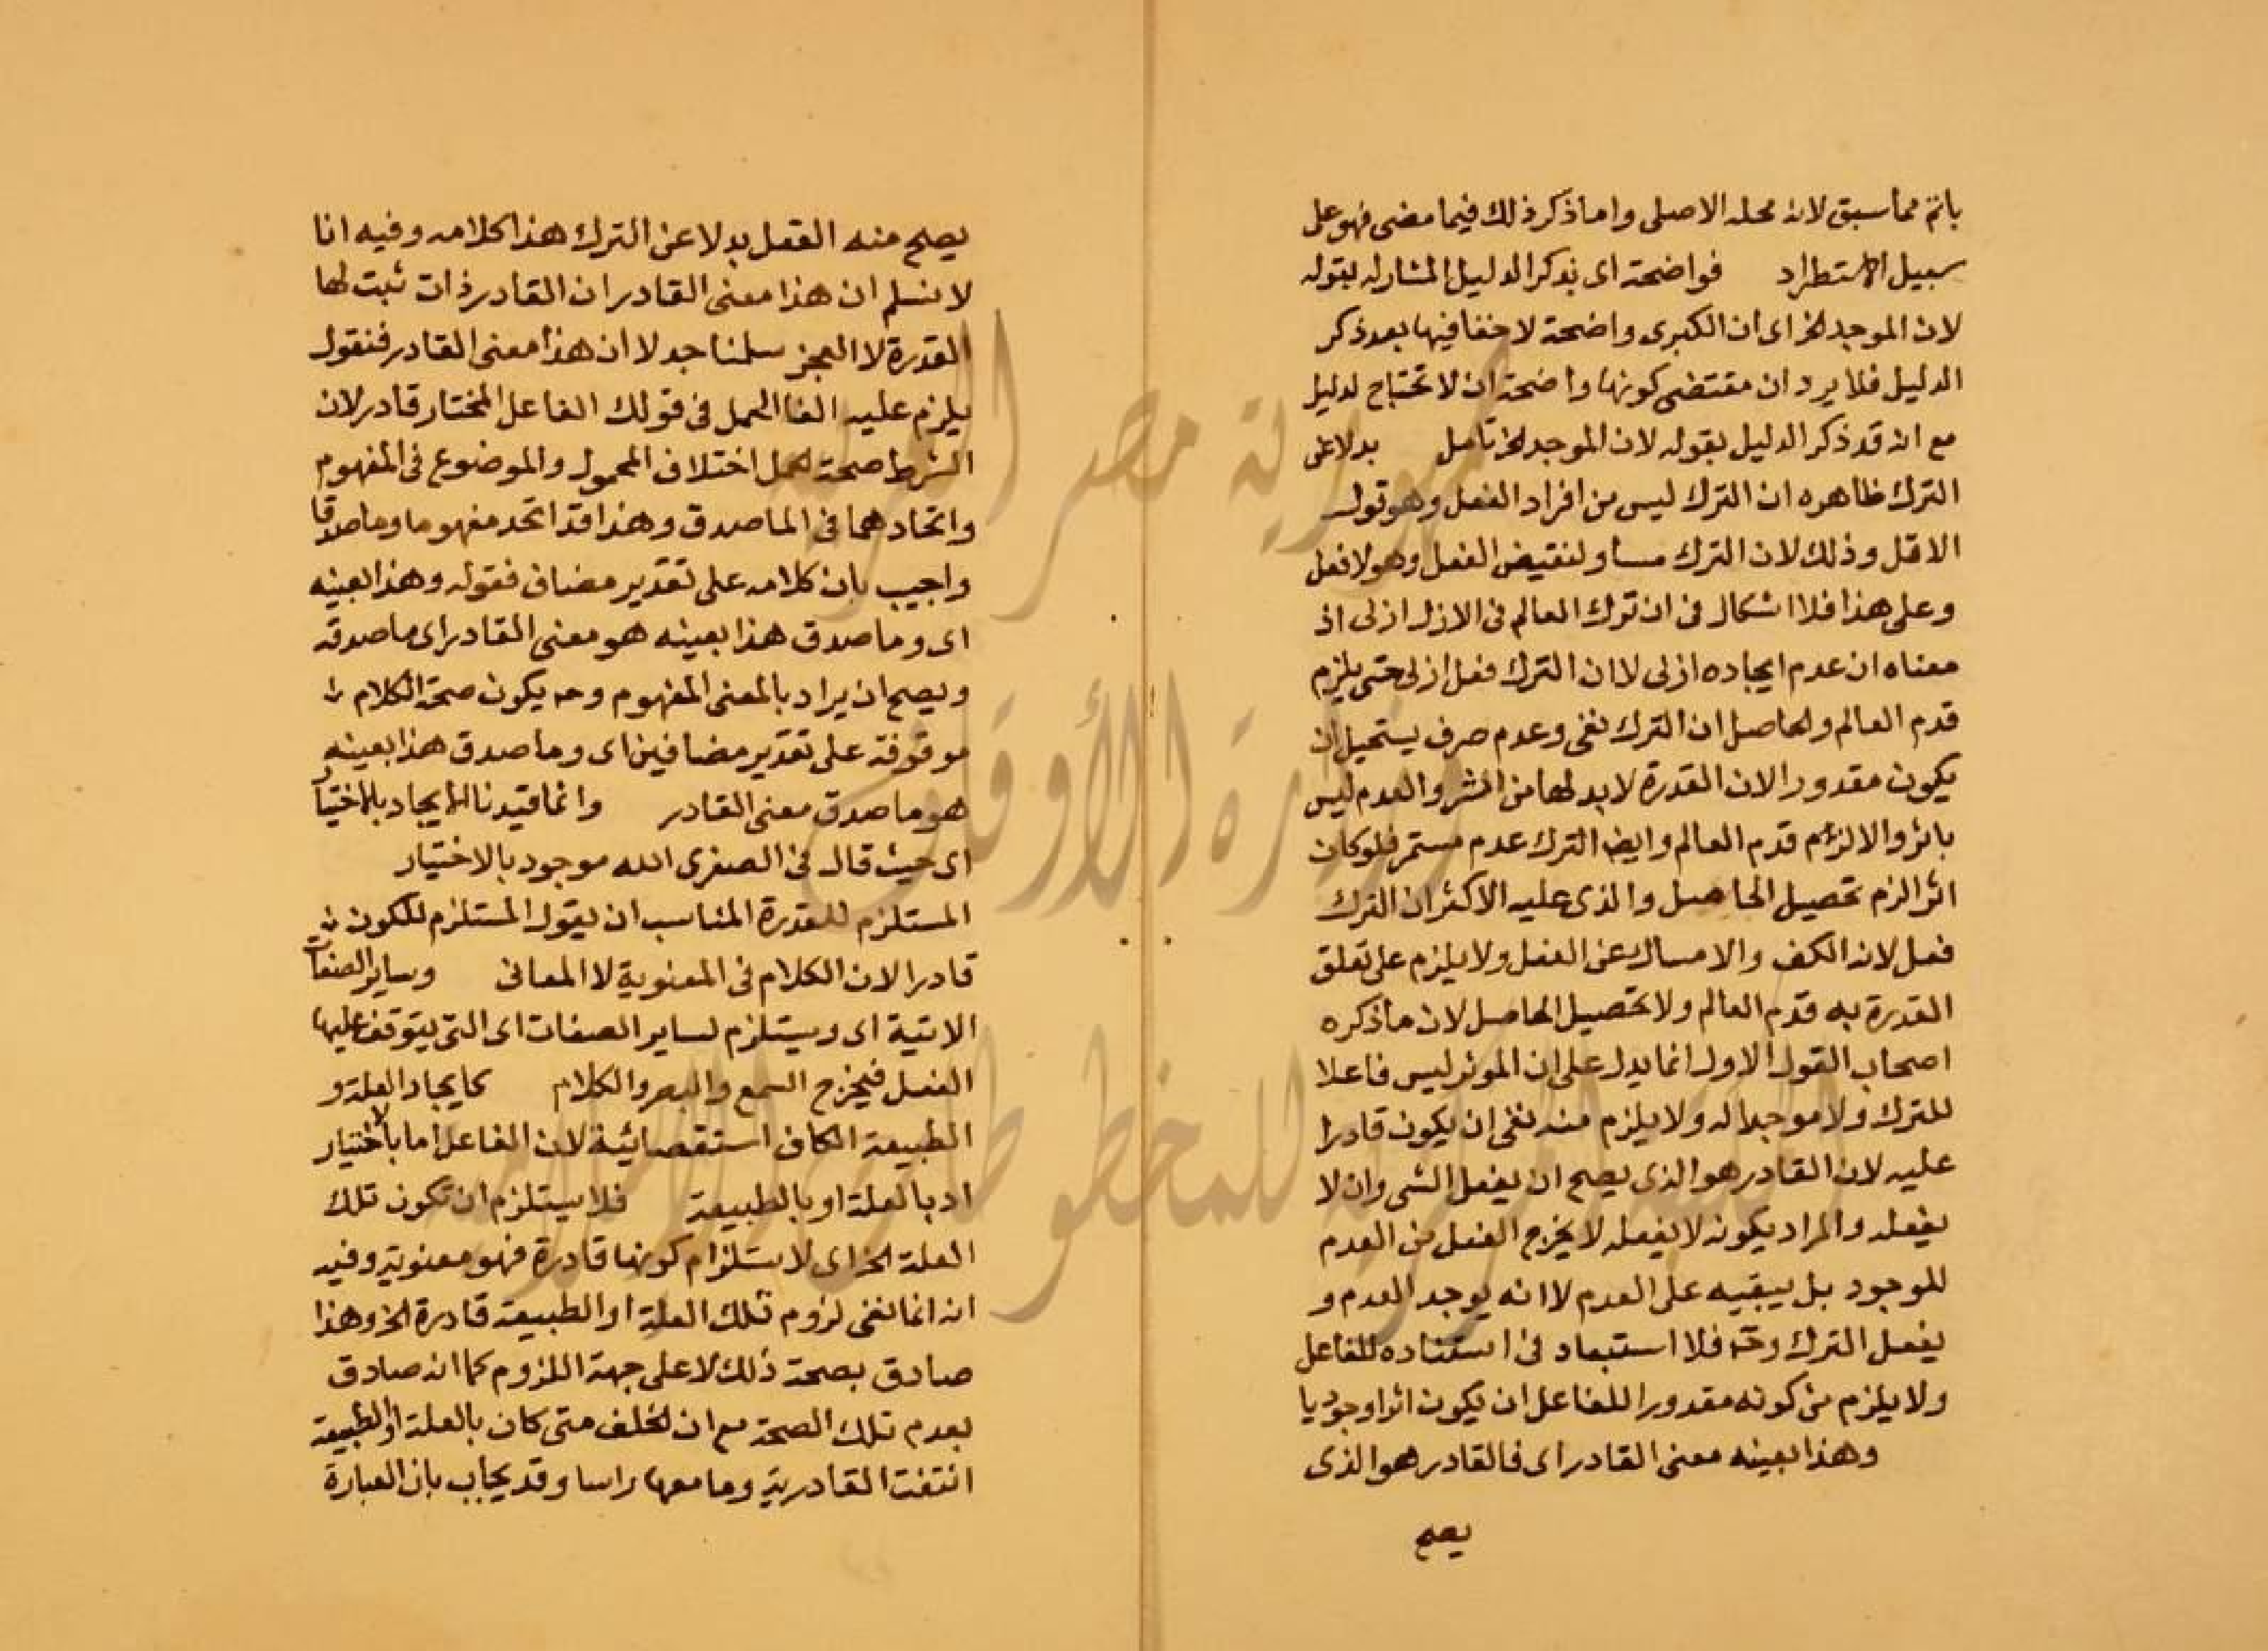 باتم مما سبق لانه محله الاصلى واما ذكر ذلك فيما مضى فهو على
سبيل الاستطراد فواضحة اى بذكر الدليل المشار له بقوله
لان الموجد الخ اى ان الكبرى واضحة لا خفا فيها بعد ذكر
الدليل فلا يرد ان مقتضى كونها واضحة ان لا تحتاج لدليل
مع انه قد ذكر الدليل بقوله لان الموجد الخ تامل بدلا عن
الترك ظاهره ان الترك ليس من افراد الفعل وهو قول
الاقل وذلك لان الترك مساو لنقيض الفعل وهو لا فعل
وعلى هذا فلا اشكال فى ان ترك العالم فى الازل ازلى اذ
معناه ان عدم ايجاده ازلى لا ان الترك فعل ازلى حتى يلزم
قدم العالم والحاصل ان الترك نفى وعدم صرف يستحيل ان
يكون مقدورا لان القدرة لا بد لها من اثر والعدم ليس
باثر والا لزم قدم العالم وايضا الترك عدم مستمر فلو كان
اثرا لزم تحصيل الحاصل والذى عليه الاكثر ان الترك
فعل لانه الكف والامساك عن الفعل ولا يلزم على تعلق
القدرة به قدم العالم ولا تحصيل الحاصل لان ما ذكره
اصحاب القول الاول انما يدل على ان الموثر ليس فاعلا
للترك ولا موجدا له ولا يلزم منه نفى ان يكون قادرا
عليه لان القادر هو الذى يصح ان يفعل الشى وان لا
يفعله والمراد بكونه لا يفعله لا يخرج الفعل من العدم
للوجود بل يبقيه على العدم لا انه يوجد العدم و
يفعل الترك وح فلا استبعاد فى استناده للفاعل
ولا يلزم من كونه مقدورا للفاعل ان يكون اثرا وجوديا
وهذا بعينه معنى القادر اى فالقادر هو الذى
يصح
يصح منه الفعل بدلا عن الترك هذا كلامه وفيه انا
لا نسلم ان هذا معنى القادر ان القادر ذات ثبت لها
القدرة لا العجز سلمنا جدلا ان هذا معنى القادر فنقول
يلزم عليه الغا الحمل فى قولك الفاعل المختار قادر لان
الشرط صحة الحمل اختلاف المحمول والموضوع فى المفهوم
واتحادهما فى الماصدق وهذا قد اتحد مفهوما وماصدقا
واجيب بان كلامه على تقدير مضاف فقوله وهذا بعينه
اى وماصدق هذا بعينه هو معنى القادر اى ماصدقه
ويصح ان يراد بالمعنى المفهوم وح يكون صحة الكلام
موقوفة على تقدير مضافين اى وماصدق هذا بعينه
هو ماصدق معنى القادر وانما قيدنا الايجاد بالاختيار
اى حيث قال فى الصغرى الله موجود بالاختيار
المستلزم للقدرة المناسب ان يقول المستلزم للكون
قادرا لان الكلام فى المعنوية لا المعانى وساير الصفات
الاتية اى ويستلزم لساير الصفات اى التى يتوقف عليها
الفعل فيخرج السمع والبصر والكلام كايجاد العلة و
الطبيعة الكاف استقصائية لان الفاعل اما بالاختيار
او بالعلة او بالطبيعة فلا يستلزم ان تكون تلك
العلة الخ اى لا ستلزام كونها قادرة فهو معنوية وفيه
انه انما نفى لزوم تلك العلة او الطبيعة قادرة الخ وهذا
صادق بصحة ذلك لا على جهة اللزوم كما انه صادق
بعدم تلك الصحة مع ان الخلف متى كان بالعلة او الطبيعة
انتفت القادرية وما معها راسا وقد يجاب بان العبارة
جمهورية مصر العربية
وزارة الأوقاف
المكتبة المركزية للمخطوطات الإسلامية